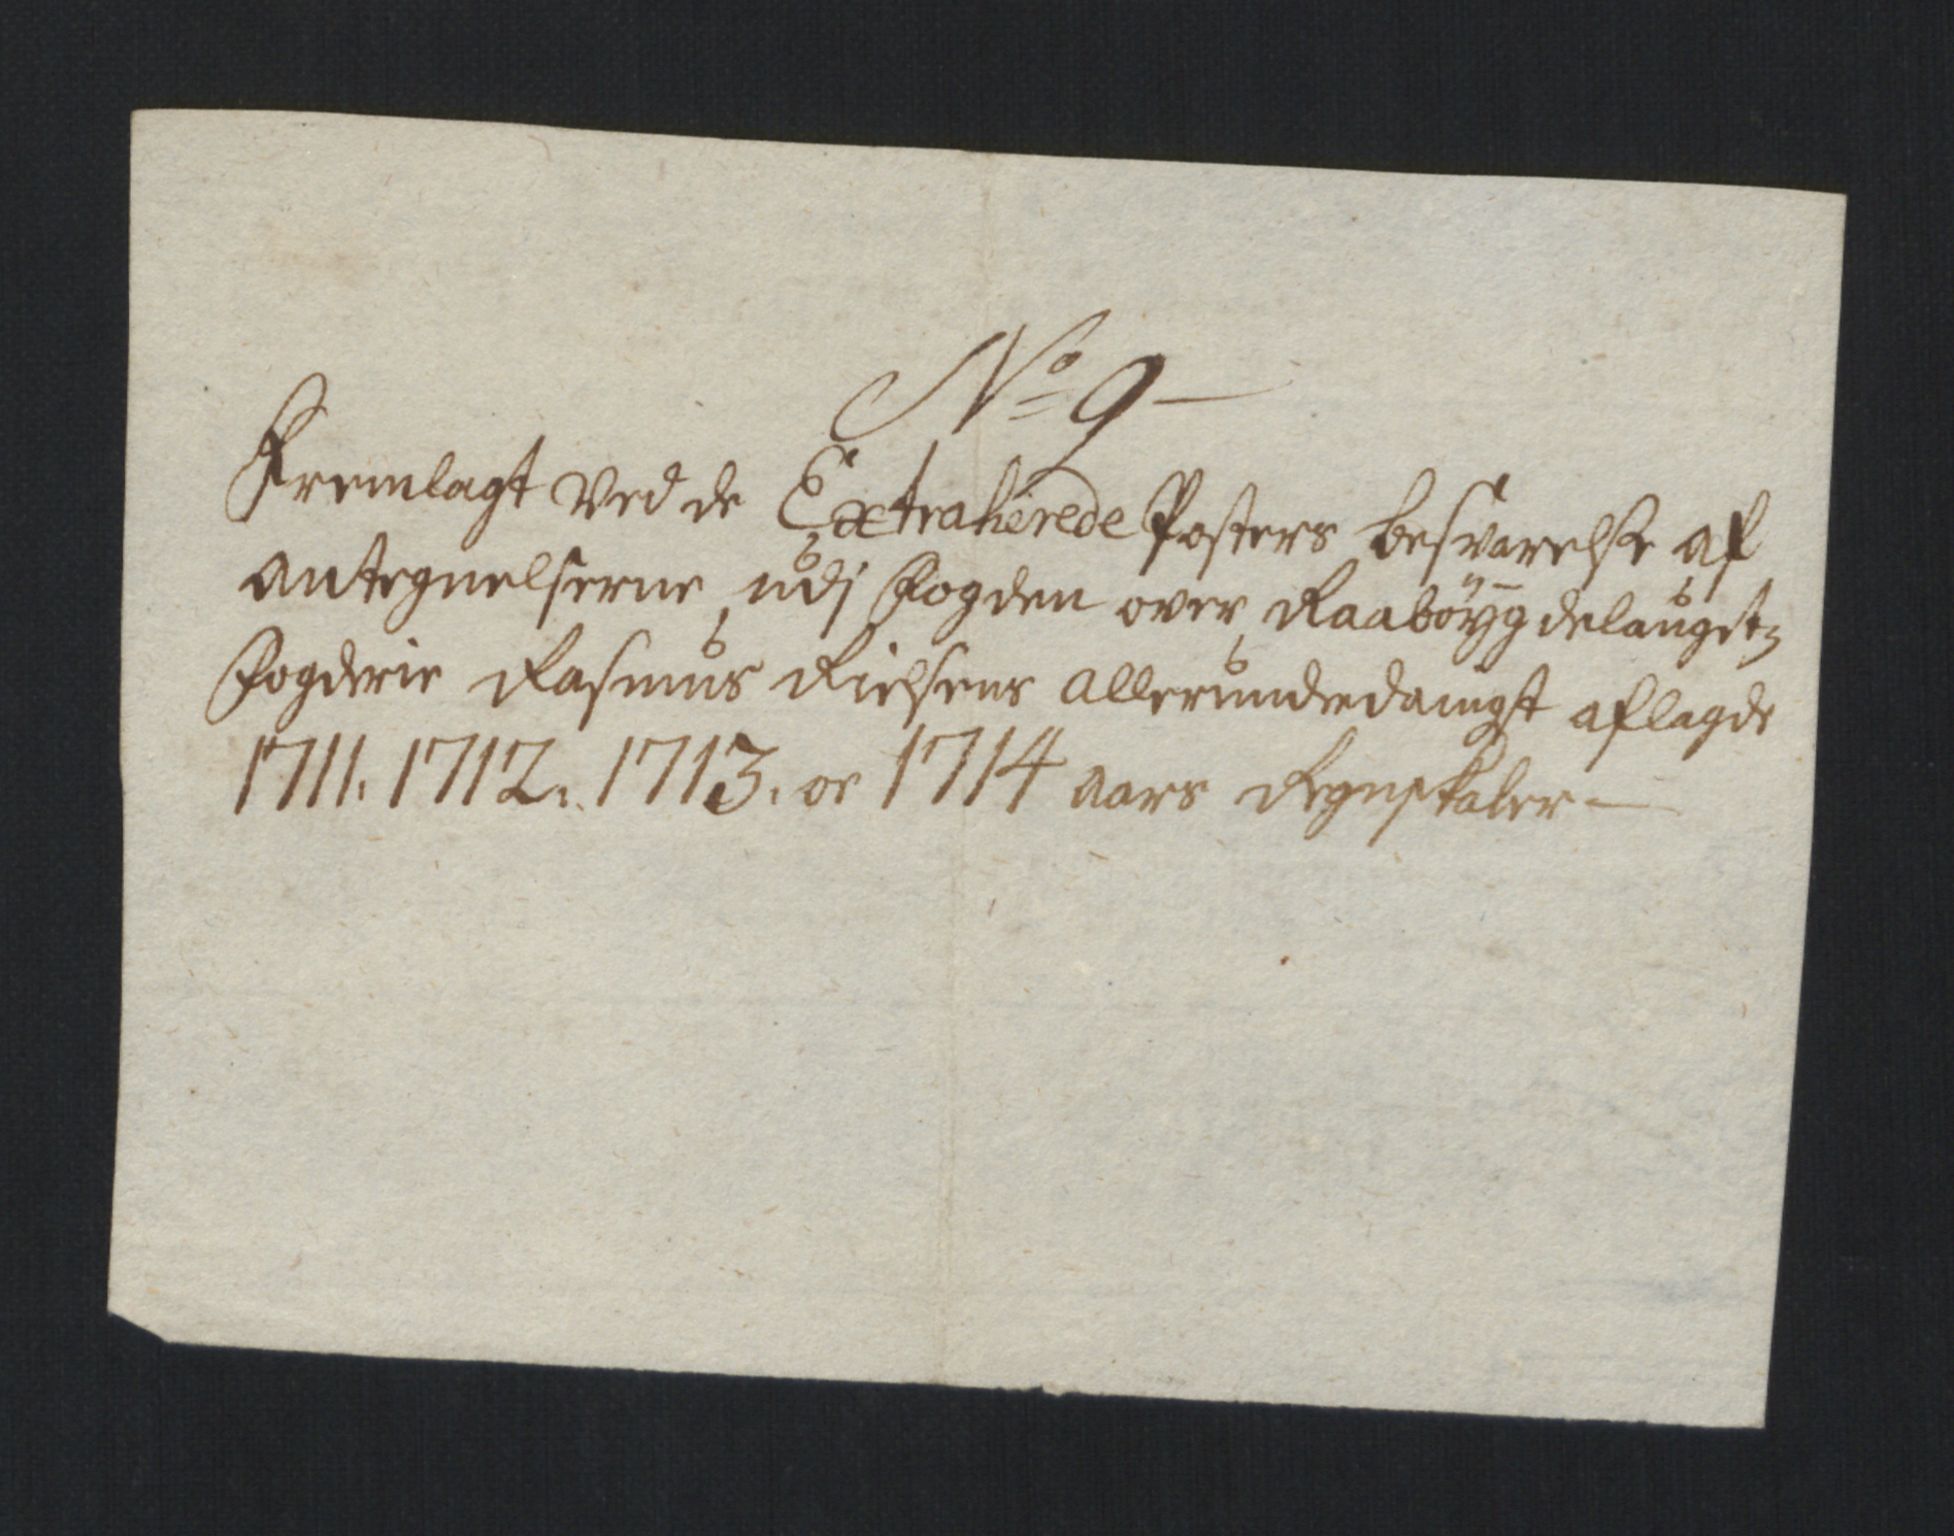 No 9 –
Fremlagt ved de Extraherede Posters besvarelse af
antegnelserne, udj Fogden over Raabÿgdelaugetz
Fogderie Rasmus Nielsens allerunderdanigst aflagde
1711. 1712. 1713. oc 1714 aars Regnskaber –